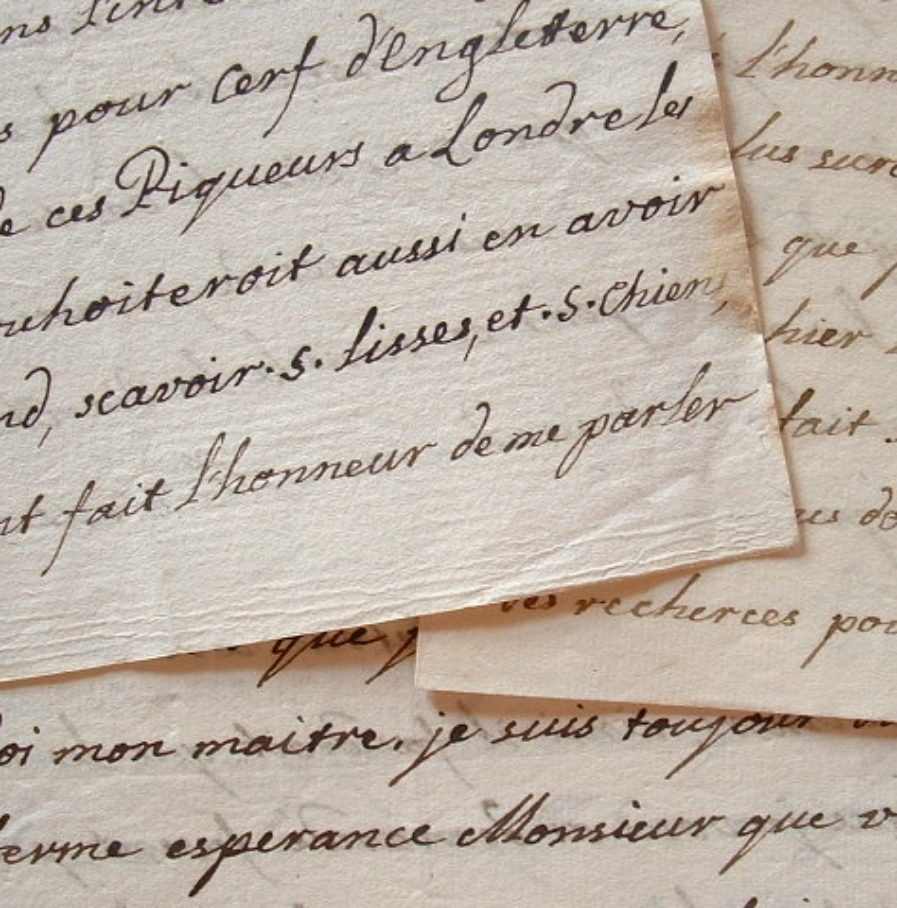 pour Cerf d'Engleterre,
ces Piqueurs a Londre les
uhoiteroit aussi en avoir
nd, scavoir. s. lisses, et. s. chiens,
nt fait l'honneur de me parler
l'honn
lus sur
que
hier
fait
us de
des recherces pou
que
oi mon maitre. je suis toujour
ferme esperance Monsieur que v